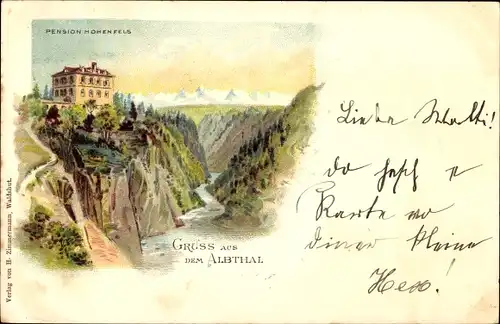 PENSION HOHENFELS
GRUSS AUS
DEM ALBTHAL
Verlag von H. Zimmermann, Waldshut.
Liebe
da hesch
Karte vo
diner kleine